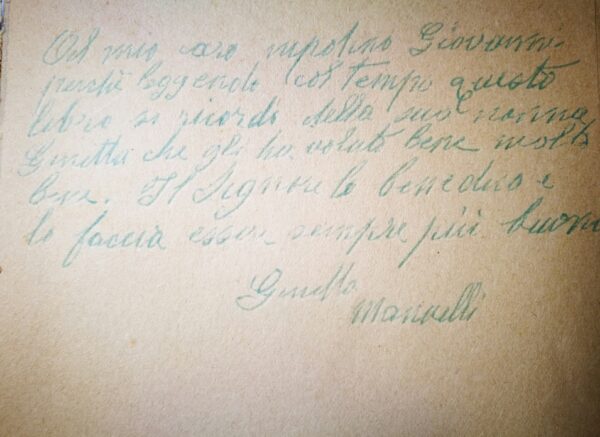 Al mio caro nipotino Giovanni
perchè leggendo col tempo questo
libro si ricordi della sua nonna
Ginetta che gli ha voluto bene molto
bene. Il Signore lo benedica e
lo faccia essere sempre più buono
Ginetta
Mannelli